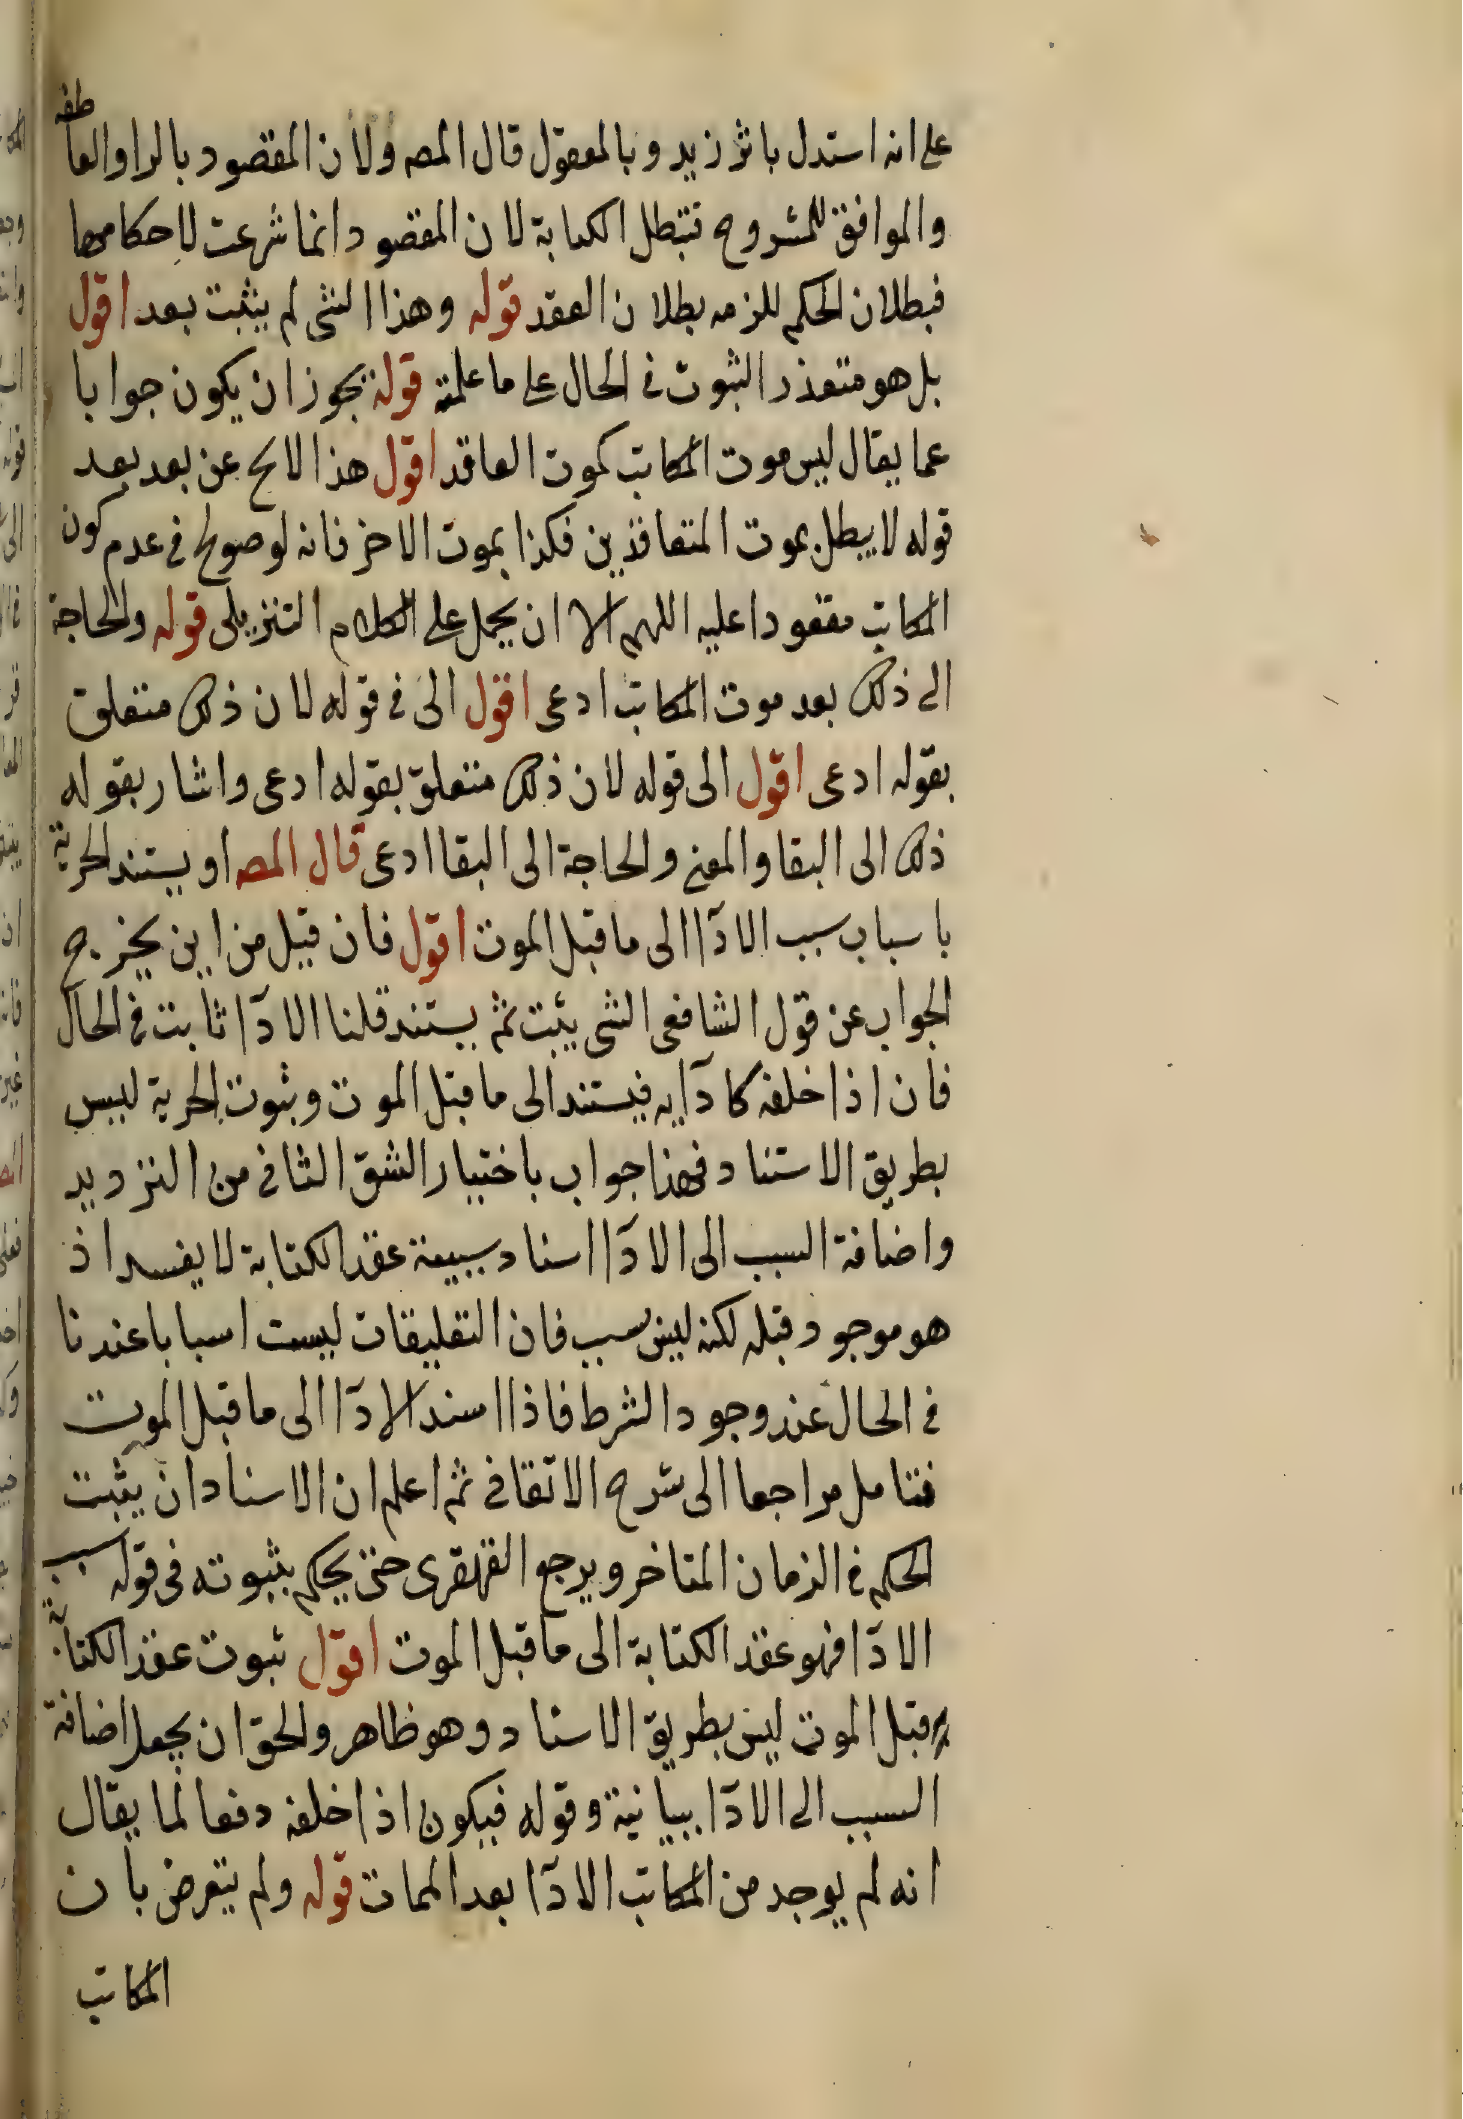 على انه استدل باثر زيد وبالمعقول قال المصه ولان المقصود بالراو العاطفه
والموافق للمشروح فتبطل الكتابة لان المقصود انما شرعت لاحكامها
فبطلان الحكم للزمه بطلان العقد قوله وهذا الشى لم يثبت بعد اقول
بل هو متعذر الثبوت فى الحال على ما علمته قوله يجوز ان يكون جوابا
عما يقال ليس موت المكاتب كموت العاقد اقول هذا لائح عن بعد بعد
قوله لا يبطل بموت المتعاقدين فكذا بموت الاخر فانه لو صولح فى عدم كون
المكاتب معقودا عليه اللهم الا ان يحمل على الكلام التنزيلى قوله والحاجة
الى ذلك بعد موت المكاتب ادعى اقول الى فى قوله لان ذلك متعلق
بقوله ادعى اقول الى قوله لان ذلك متعلق بقوله ادعى واشار بقوله
ذلك الى البقا والمعنى والحاجة الى البقا ادعى قال المصه او يستند الحرية
باسباب سبب الادآ الى ما قبل الموت اقول فان قيل من اين يخرج
الجواب عن قول الشافعى الشى يثبت ثم يستند قلنا الادآ ثابت فى الحال
فان اذا خلفه كادآيه فيستند الى ما قبل الموت وثبوت الحرية ليس
بطريق الاستناد فهذا جواب باختيار الشق الثانى من الترديد
واضافة السبب الى الادآ اسناد سببية عقد الكتابة لا يفسد اذ
هو موجود قبله لكنه ليس بسبب فان التعليقات ليست اسبابا عندنا
فى الحال عند وجود الشرط فاذا اسند الادآ الى ما قبل الموت
فتامل مراجعا الى شرح الاتقانى ثم اعلم ان الاسناد ان يثبت
الحكم فى الزمان المتاخر ويرجع القهقرى حتى يحكم بثبوته فى قوله سبب
الادآ فهو عقد الكتابة الى ما قبل الموت اقول ثبوت عقد الكتابة
قبل الموت ليس بطريق الاسناد وهو ظاهر والحق ان يجعل اضافة
السبب الى الادآ بيانية وقوله فيكون اذا خلفه دفعا لما يقال
انه لم يوجد من المكاتب الادآ بعد الممات قوله ولم يتعرض بان
المكاتب